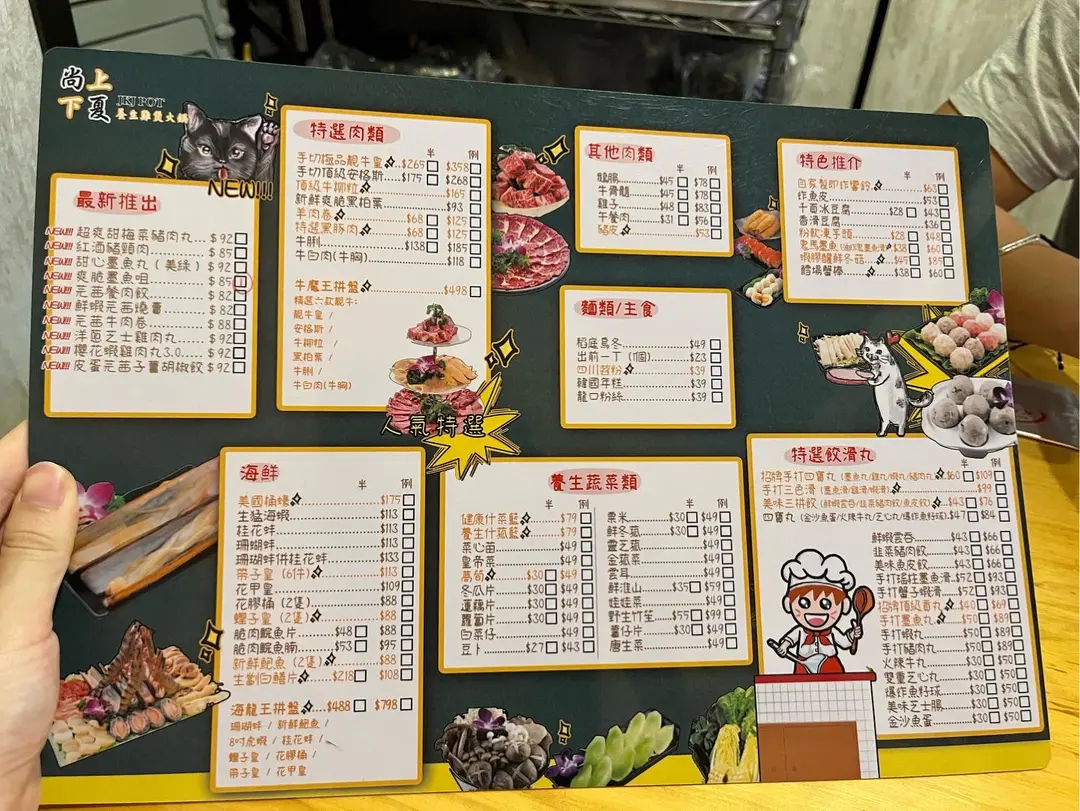 尚上
下夏
JKJ POT
養生雞煲火鍋
NEW!!!
最新推出
NEW!!! 超爽甜梅菜豬肉丸...$92
NEW!!! 紅酒豬頸肉...$85
NEW!!! 甜心墨魚丸(美綠)$92
NEW!!! 爽脆墨魚咀...$85
NEW!!! 芫茜餐肉餃...$82
NEW!!! 鮮蝦芫茜燒賣...$82
NEW!!! 芫茜牛肉卷...$88
NEW!!! 洋蔥芝士雞肉丸...$92
NEW!!! 櫻花蝦雞肉丸3.0...$92
NEW!!! 皮蛋芫茜子薑胡椒餃$92
特選肉類
半 例
手切極品靚牛皇...$265 $358
手切頂級安格斯...$175 $268
頂級牛柳粒...$165
新鮮爽脆黑柏葉...$93
羊肉卷...$68 $125
特選黑豚肉...$68 $125
牛脷...$138 $185
牛白肉(牛胸)...$118
牛魔王拼盤...$498
精選六款靚牛:
靚牛皇 /
安格斯 /
牛柳粒 /
黑柏葉 /
牛脷 /
牛白肉(牛胸)
人氣特選
其他肉類
半 例
鵝腸...$45 $78
牛骨髓...$45 $78
雞子...$48 $83
午餐肉...$31 $56
豬皮...$53
麵類/主食
稻庭烏冬...$49
出前一丁(1個)...$23
四川苕粉...$39
韓國年糕...$39
龍口粉絲...$39
特色推介
半 例
自家製即炸響鈴...$63
炸魚皮...$53
千百冰豆腐...$28 $43
香滑豆腐...$36
粉飲凍芋頭...$28 $48
$38 $60
蝦膠釀鮮冬菇...$45 $85
鱈場蟹棒...$38 $60
海鮮
半 例
美國桶蠔...$175
生猛海蝦...$113
桂花蚌...$113
珊瑚蚌...$113
珊瑚蚌併桂花蚌...$133
帶子皇(6件)...$113
花甲皇...$109
花膠桶(2隻)...$88
蟶子皇(2隻)...$88
脆肉鯇魚片...$48 $88
脆肉鯇魚腩...$53 $95
新鮮鮑魚(2隻)...$88
生劏白鱔片...$218 $108
海龍王拼盤...$488 $798
珊瑚蚌 / 新鮮鮑魚 /
8吋虎蝦 / 桂花蚌 /
蟶子皇 / 花膠桶 /
帶子皇 / 花甲皇
養生蔬菜類
半 例
健康什菜籃...$79
養生什菰籃...$79
菜心苗...$49
皇帝菜...$49
萵筍...$30 $49
冬瓜片...$30 $49
蓮藕片...$30 $49
蘿蔔片...$30 $49
白菜仔...$49
豆卜...$27 $43
半 例
粟米...$30 $49
鮮冬菰...$30 $49
靈芝菰...$49
金菰菜...$49
雲耳...$49
鮮淮山...$35 $59
娃娃菜...$49
野生竹笙...$55 $99
薯仔片...$30 $49
唐生菜...$49
特選餃滑丸
半 例
招牌手打四寶丸(墨魚丸/雞丸/蝦丸/豬肉丸)$60 $109
手打三色滑(墨魚滑/雞滑/蝦滑)...$99
美味三拼餃(鮮蝦雲吞/韭菜豬肉餃/魚皮餃)...$43 $76
四寶丸(金沙魚蛋/火辣牛丸/芝心丸/爆炸魚籽球).$47 $84
鮮蝦雲吞...$43 $66
韭菜豬肉餃...$43 $66
美味魚皮餃...$43 $66
手打瑤柱墨魚滑...$52 $93
手打蟹子蝦滑...$52 $93
招牌頂級貢丸...$40 $69
手打墨魚丸...$50 $89
手打蝦丸...$50 $89
手打豬肉丸...$50 $89
火辣牛丸...$30 $50
雙重芝心丸...$30 $50
爆炸魚籽球...$30 $50
美味芝士腸...$30 $50
金沙魚蛋...$30 $50